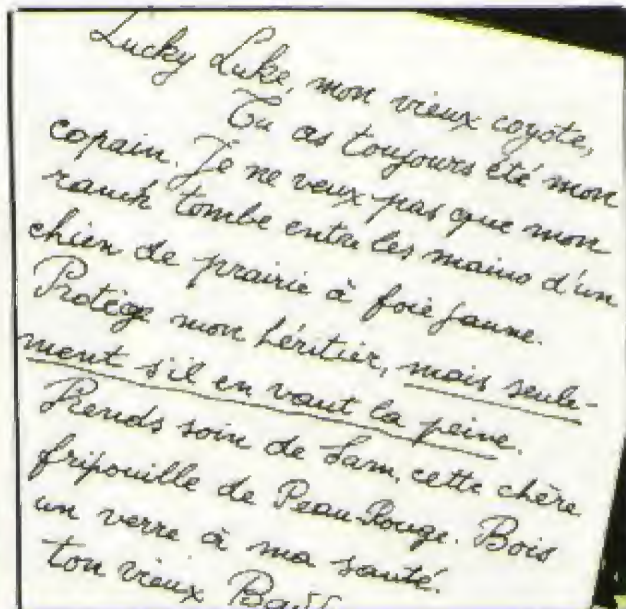 Lucky Luke, mon vieux coyote,
Tu as toujours été mon
copain. Je ne veux pas que mon
ranch tombe entre les mains d'un
chien de prairie à foie jaune.
Protège mon héritier, mais seule-
ment s'il en vaut la peine.
Prends soin de Sam, cette chère
fripouille de Peau-Rouge. Bois
un verre à ma santé.
ton vieux